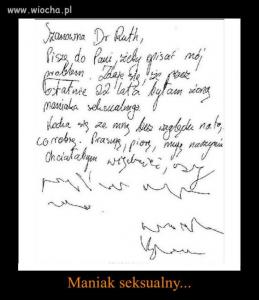 www.wiocha.pl
Szanowna Dr Ruth,
Piszę do Pani, żeby opisać mój
problem. Zdaje się, że przez
ostatnie 22 lata byłam żoną
maniaka seksualnego.
Kocha się ze mną bez względu na to,
co robię. Prasuję, piorę, myję naczynia
Chciałabym wiedzieć, czy
Maniak seksualny...